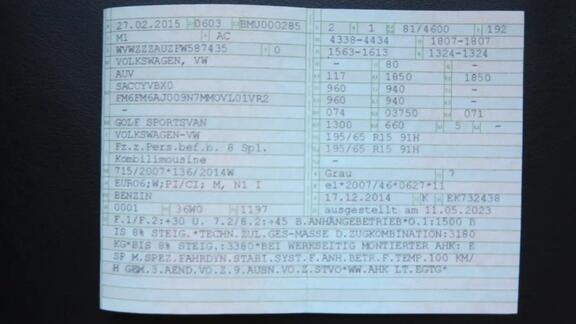 27.02.2015 0603 BMU000285
M1 AC
WVWZZZAUZFW587435 0
VOLKSWAGEN, VW
AUV
SACCYVBX0
FM6FM6AJ009N7MMOVL01VR2
-
GOLF SPORTSVAN
VOLKSWAGEN-VW
Fz.z.Pers.bef.b. 8 Spl.
Kombilimousine
715/2007*136/2014W
EURO6;W;PI/CI; M, N1 I
BENZIN
0001 36W0 1197
2 1 81/4600 192
4338-4434 1807-1807
1563-1613 1324-1324
- 80 -
117 1850 1850
960 940 -
960 940 -
074 03750 071
1300 660 5 -
195/65 R15 91H
195/65 R15 91H
-
Grau 7
e1*2007/46*0627*11
17.12.2014 K EK732438
ausgestellt am 11.05.2023
F.1/F.2:+30 U. 7.2/8.2:+45 B.ANHÄNGEBETRIEB*O.1:1500 B
IS 8% STEIG.*TECHN.ZUL.GES-MASSE D.ZUGKOMBINATION:3180
KG*BIS 8% STEIG.:3380*BEI WERKSEITIG MONTIERTER AHK: E
SP M.SPEZ.FAHRDYN.STABI.SYST.F.ANH.BETR.F.TEMP.100 KM/
H GEM.3.AEND.VO.Z.9.AUSN.VO.Z.STVO*WW.AHK LT.EGTG*